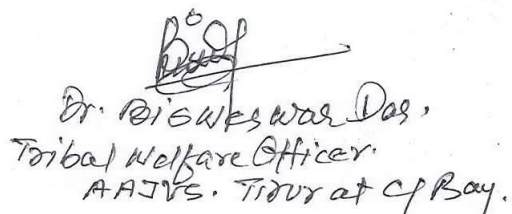 Dr. Bisweswar Das.
Tribal Welfare Officer.
AAJVS. Tirur at C/ Bay.